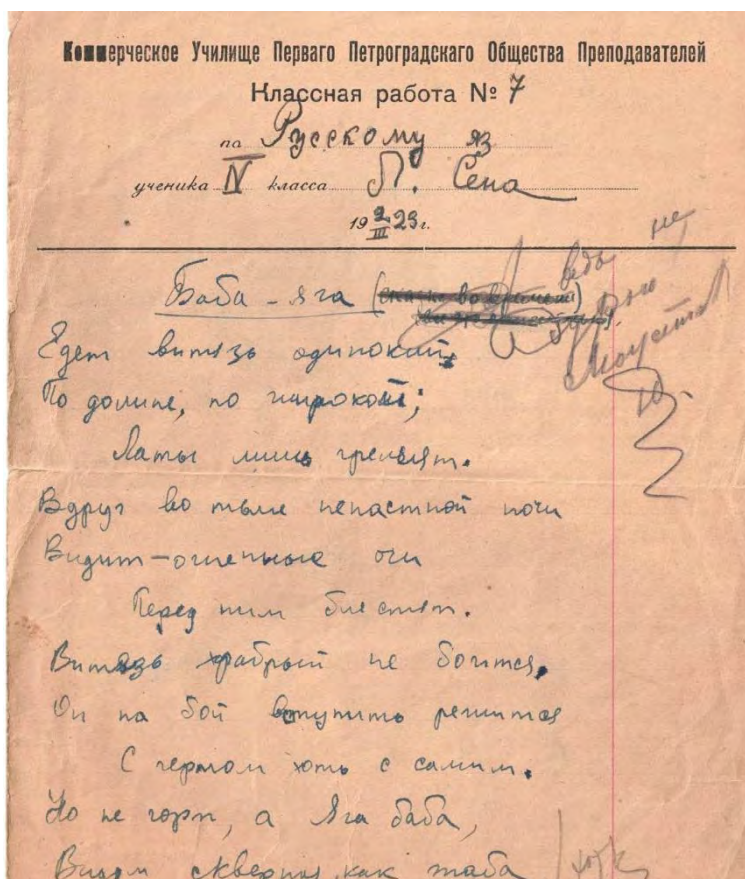 Коммерческое Училище Перваго Петроградскаго Общества Преподавателей
Классная работа № 7
по Русскому яз
ученика IV класса П. Сена
19 2/III 23 г.
Баба-яга
Едет витязь одинокий,
По долине, по широкой;
Латы лишь гремят.
Вдруг во тьме ненастной ночи
Видит-огненные очи
Перед ним блестят.
Витязь храбрый не боится,
Он на бой вступить решится
С чертом хоть с самим.
Но не чорт, а Яга баба,
Видом скверная, как жаба